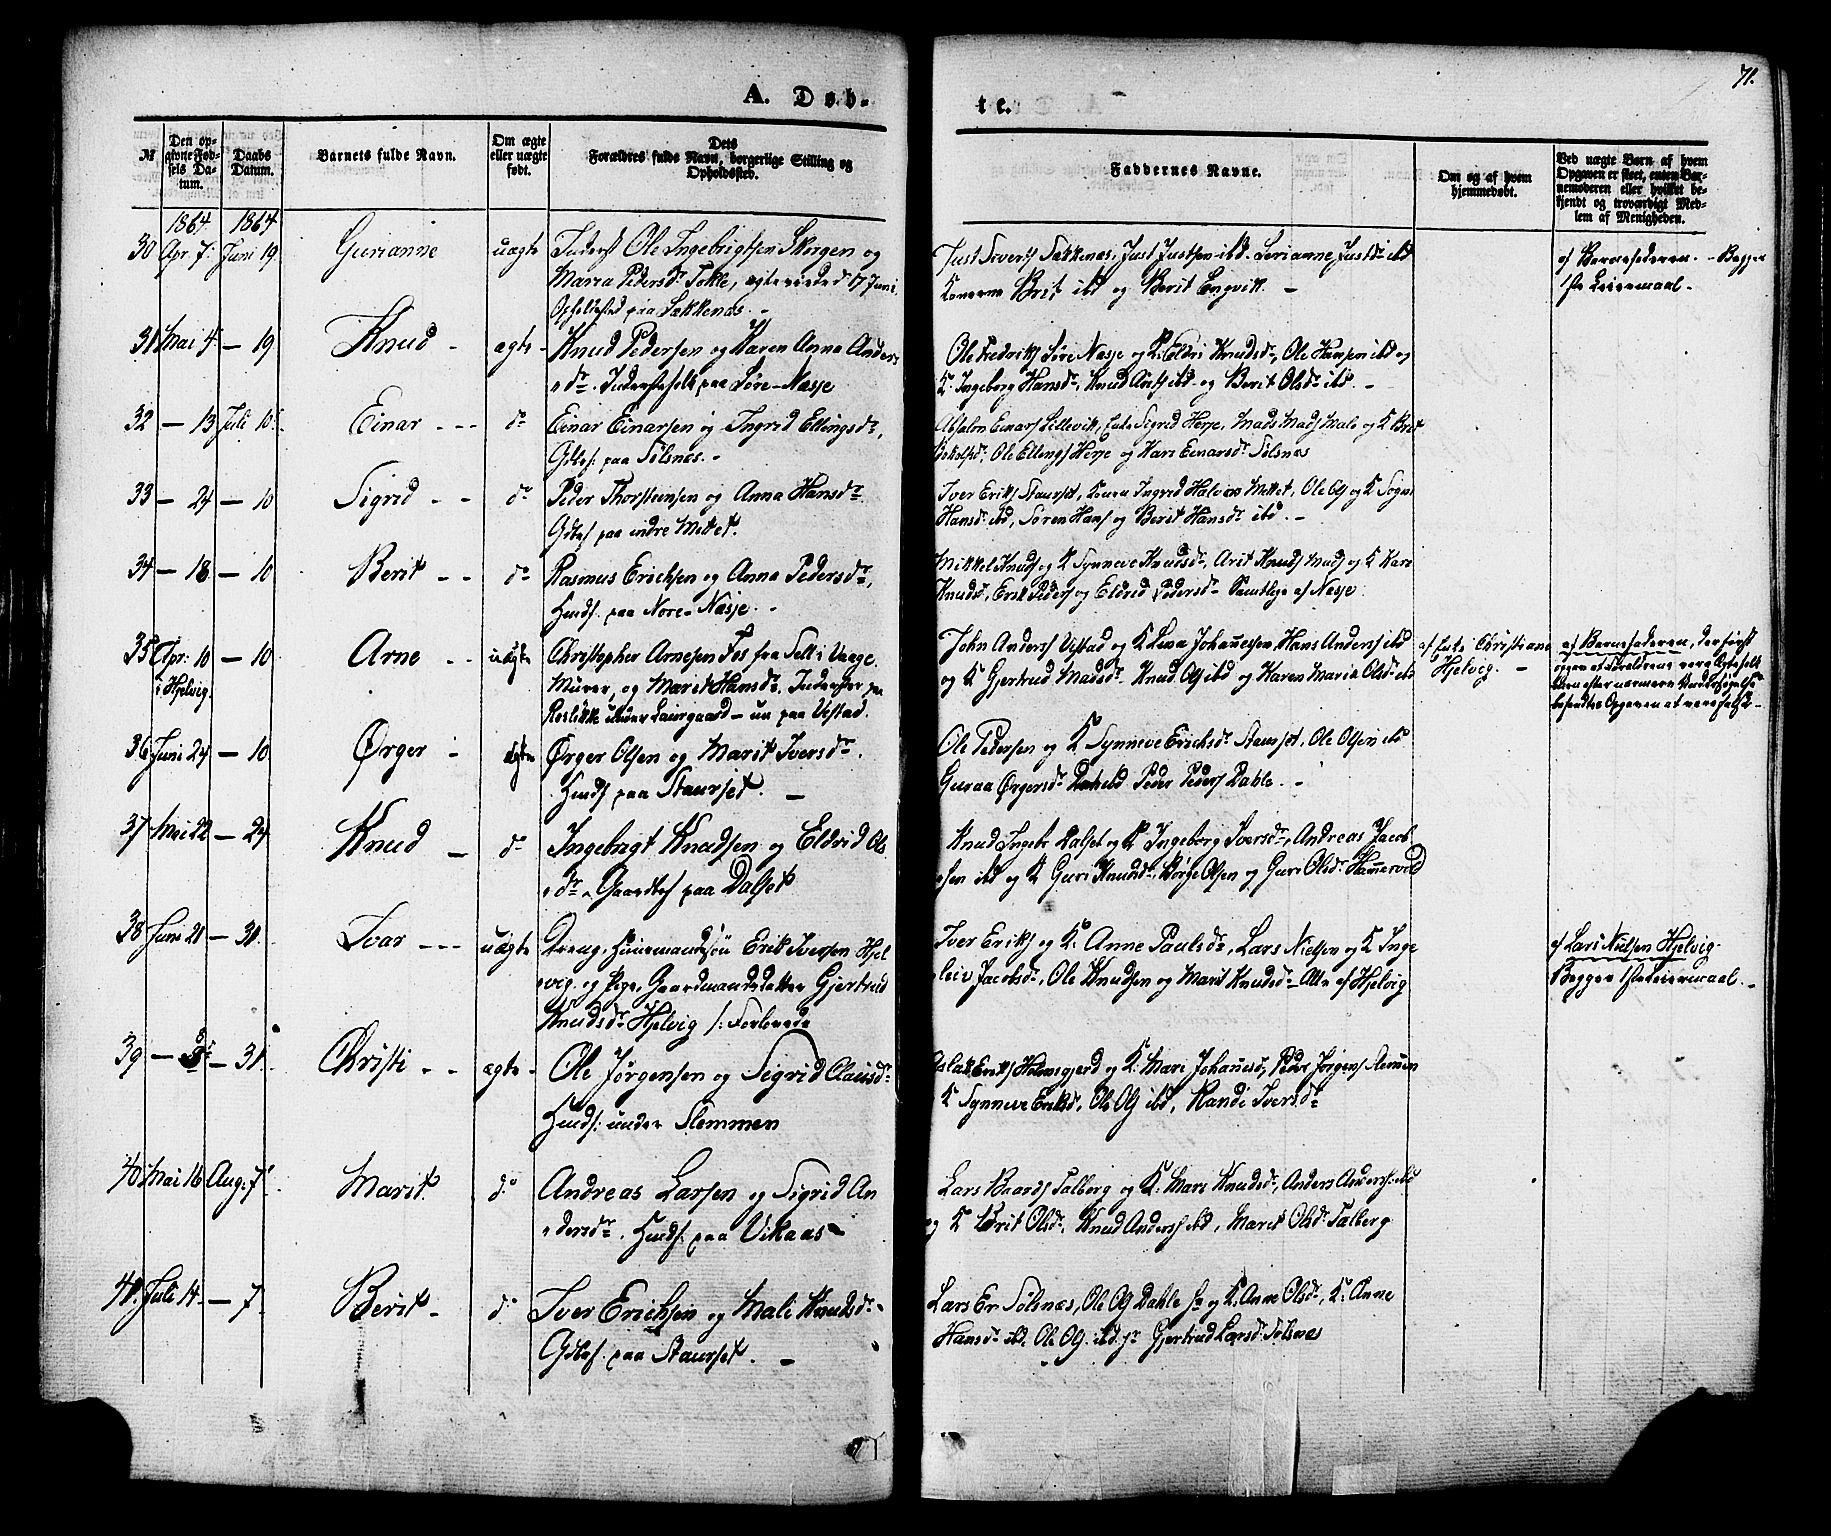 71.
A. Døb-
te.
№
Den op-
givne Fød-
sels Da-
tum.
Daabs
Datum.
Barnets fulde Navn.
Om ægte
eller uægte
født.
Dets
Forældres fulde Navn, borgerlige Stilling og
Opholdssted.
Faddernes Navne.
Om og af hvem
hjemmedøbt.
Ved uægte Børn af hvem
Opgaven er skeet, enten Bar-
nemoderen eller hvilket be-
kjendt og troværdigt Med-
lem af Menigheden.
1864. 1864
30 Apr 7. Juni 19 Gurianne uægte Inderst Ole Ingebrigtsen Skorgen og
Maren Pedersdr Tokle, ægteviede d 17 Juni
Opholdssted paa Sækkenæs. -
Just Iversen Sækkenæs, Just Justsen ibd. Serianne Justsdr ibd
Konerne Brit ibd og Berit Engvik. -
af Barnefaderen. - Begges
1ste Leiermaal -
31 Mai 4. - 19 Knud - ægte - Knud Pedersen og Karen Anna Anders
dr. Inderstfolk paa Søre-Næsje
Ole Fredriks Søre Næsje og K. Eldri Knudsdr, Ole Hansen ibd og
K. Ingeborg Hansdr, Knud Arits ibd og Berit Olsdr ibd. -
32 - 13 Juli 10 Einar - - - do Einar Einarsen og Ingrid Ellingsdr,
Gdbrf. paa Sølsnæs. -
Absalon Einars Lillevik, Enke Sigrid Herje, Mads Mads Male og K Brit
Ole Ellings Herje og Kari Einarsdr Sølsnæs
33 - 24 - 10 Sigrid - - do Peder Thorsteinsen og Anna Hansdr.
Gdbrf paa indre Mittet.
Iver Eriks Staurset, Konen Ingrid Halvors Mittet, Ole Ols og K Sogn
Hansdr ibd, Søren Hans og Berit Hansdr ibd. -
34 - 18 - 10 Berit - - do Rasmus Erichsen og Anna Pedersdr,
Husmf. paa Nore-Næsje. -
Mikkel Knuds og K Synneve Knudsdr, Arit Knuds Mads og K Kari
Knudsd, Erik Peders og Eldrid Pedersdr Samtlige af Næsje
35 Apr: 10 - 10 Arne - - uægte Christopher Arnesen Fos fra Sell i Vaage.
i Hjelvig.
Murer, og Marit Hansdr. Inderster paa
Rosløkke under Lairgaard - nu paa Vestad.
John Anders Vestad og K Lina Johannesen Hans Anders ibd
og K Gjertrud Madsdr Knud Ols ibd og Karen Maria Olsdr ibd
af Enke Christiane
Hjelvig. -
af Barnefaderen, der først
opgav at Forældrene vare Ægtefolk
Men efter nærmere Undersøgelse
befandtes Opgaven at være falsk. -
36 Juni 24 - 10 Ørger - ægte Ørger Olsen og Marit Iversdr.
Husmf paa Staurset. -
Ole Pedersen og K Synneve Erichsdr Staurset, Ole Olsen ibd
Guraa Ørgersdr Dahle Peder Peders Dahle. -
37 Mai 22 - 24 Knud - do Ingebrigt Knudsen og Eldrid Ols
dr. Gaardbrf paa Dalset
Knud Ingebr Dalset og K Ingeborg Iversdr, Andreas Jacob
sen ibd og K Guri Knudsdr. Børge Olsen og Guri Olsdr Hammervold
38 Juni 21 - 31. Ivar - - - uægte Dreng, Husmandssøn Erik Iversen Hjel
vig. og Pige, Gaardmandsdatter Gjertrud
Knudsdr Hjelvig /: Forlovede
Iver Eriks og K. Anne Paulsdr, Lars Nielsen og K Inge
leiv Jacobsdr, Ole Knudsen og Marit Knudsdr Alle af Hjelvig
af Lars Nielsen Hjelvig.
Begges 1ste Leiermaal. -
39 - - 31. Christi - - ægte - Ole Jørgensen og Sigrid Clausdr
Husmf: under Slemmen
Aslak Eriks Holmegjerd og K. Mari Johannesd, Peder Jørgens
K Synneve Eriksd, Ole Ols ibd, Randi Iversdr
40 Mai 16 Aug: 7. Marit. do Andreas Larsen og Sigrid An
dersdr. Husmf: paa Vikaas -
Lars Baards Talberg og K: Mari Knudsdr, Anders Anders ibd
og K Brit Olsdr. Knud Anders ibd, Marit Olsdr Talberg
41. Juli 14. - 7. Berit - do Iver Erichsen og Mali Knudsdr
Gdbrf. paa Staurset. -
Lars Er Sølsnæs, Ole Ols Dahle og K. Anne Olsdr, K. Anne
Hansdr ibd. Ole Ols. ibd. Gjertrud Larsdr Sølsnæs